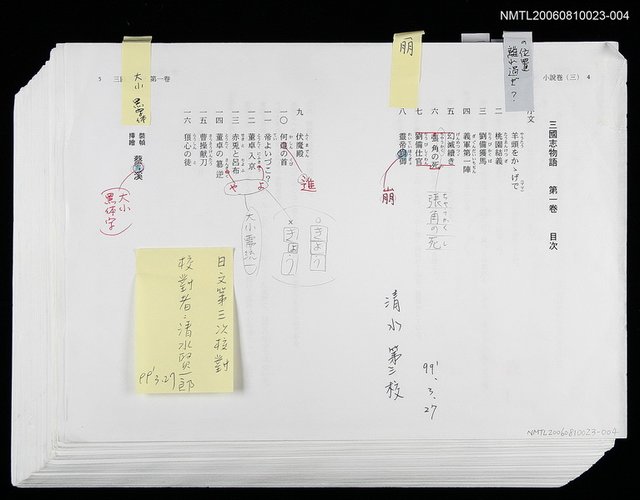 NMTL20060810023-004
小說卷（三） 4
三國志物語 第一卷 目次
序文
一 羊頭をかゝげて
二 桃園結義
三 劉備獲馬
四 義軍第一陣
五 幻滅續き
六 張角の死
七 劉備仕官
八 靈帝崩御
九 伏魔殿
一〇 何進の首
一一 帝よいづこ？
一二 董卓入京
一三 赤兎と呂布
一四 董卓の簒逆
一五 曹操献刀
一六 頂心の徒
裝幀
插繪 蔡
5 三國 第一卷
の位置
離れ過ぎ？
崩
大小 黑四体
崩
進
よ
や
大小
黑体字
張角の死
ちやうかく し
○きよう
×きょう
大小要統一
清水 第三校
99'.3.27
日文第三次校對
校對者：清水賢一郎
99'.3.27
NMTL20060810023-004